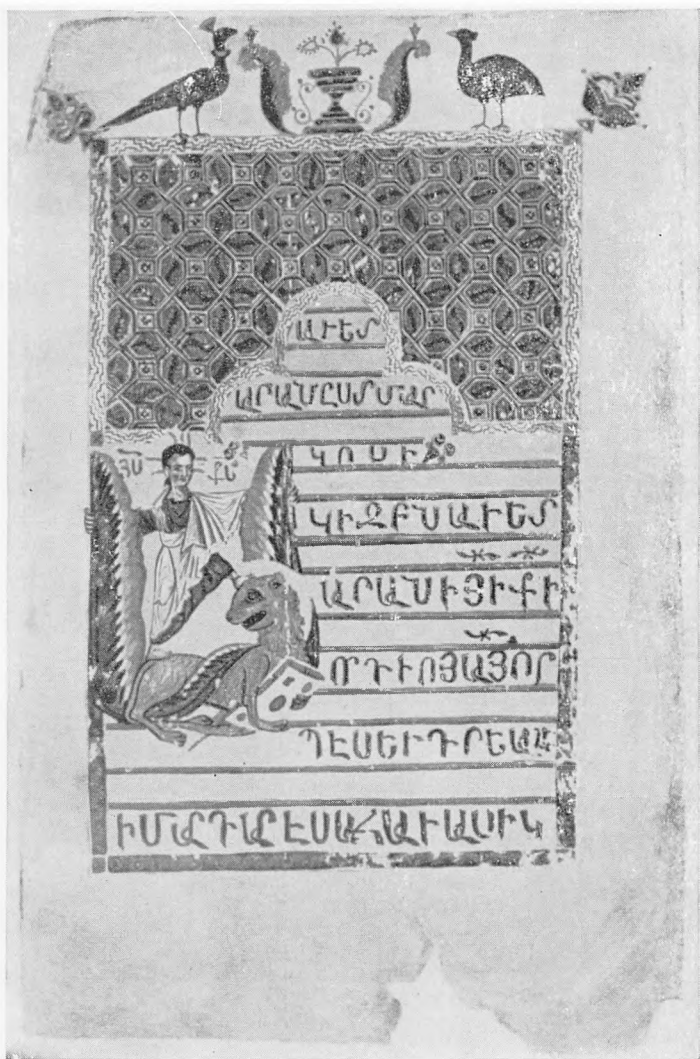 ԱՒԵՏ
ԱՐԱՆԸՍՏՄԱՐ
ՅՍ ՔՍ
ԿՈՍԻ
ԿԻԶԲՆԱՒԵՏ
ԱՐԱՆԻՅԻՔԻ
ՈՐԴՒՈՅԱՅՈՐ
ՊԷՍԵՒԳՐԵԱԼ
ԻՄԱՐԳԱՐԷՍԱՀԱՒԱՍԻԿ